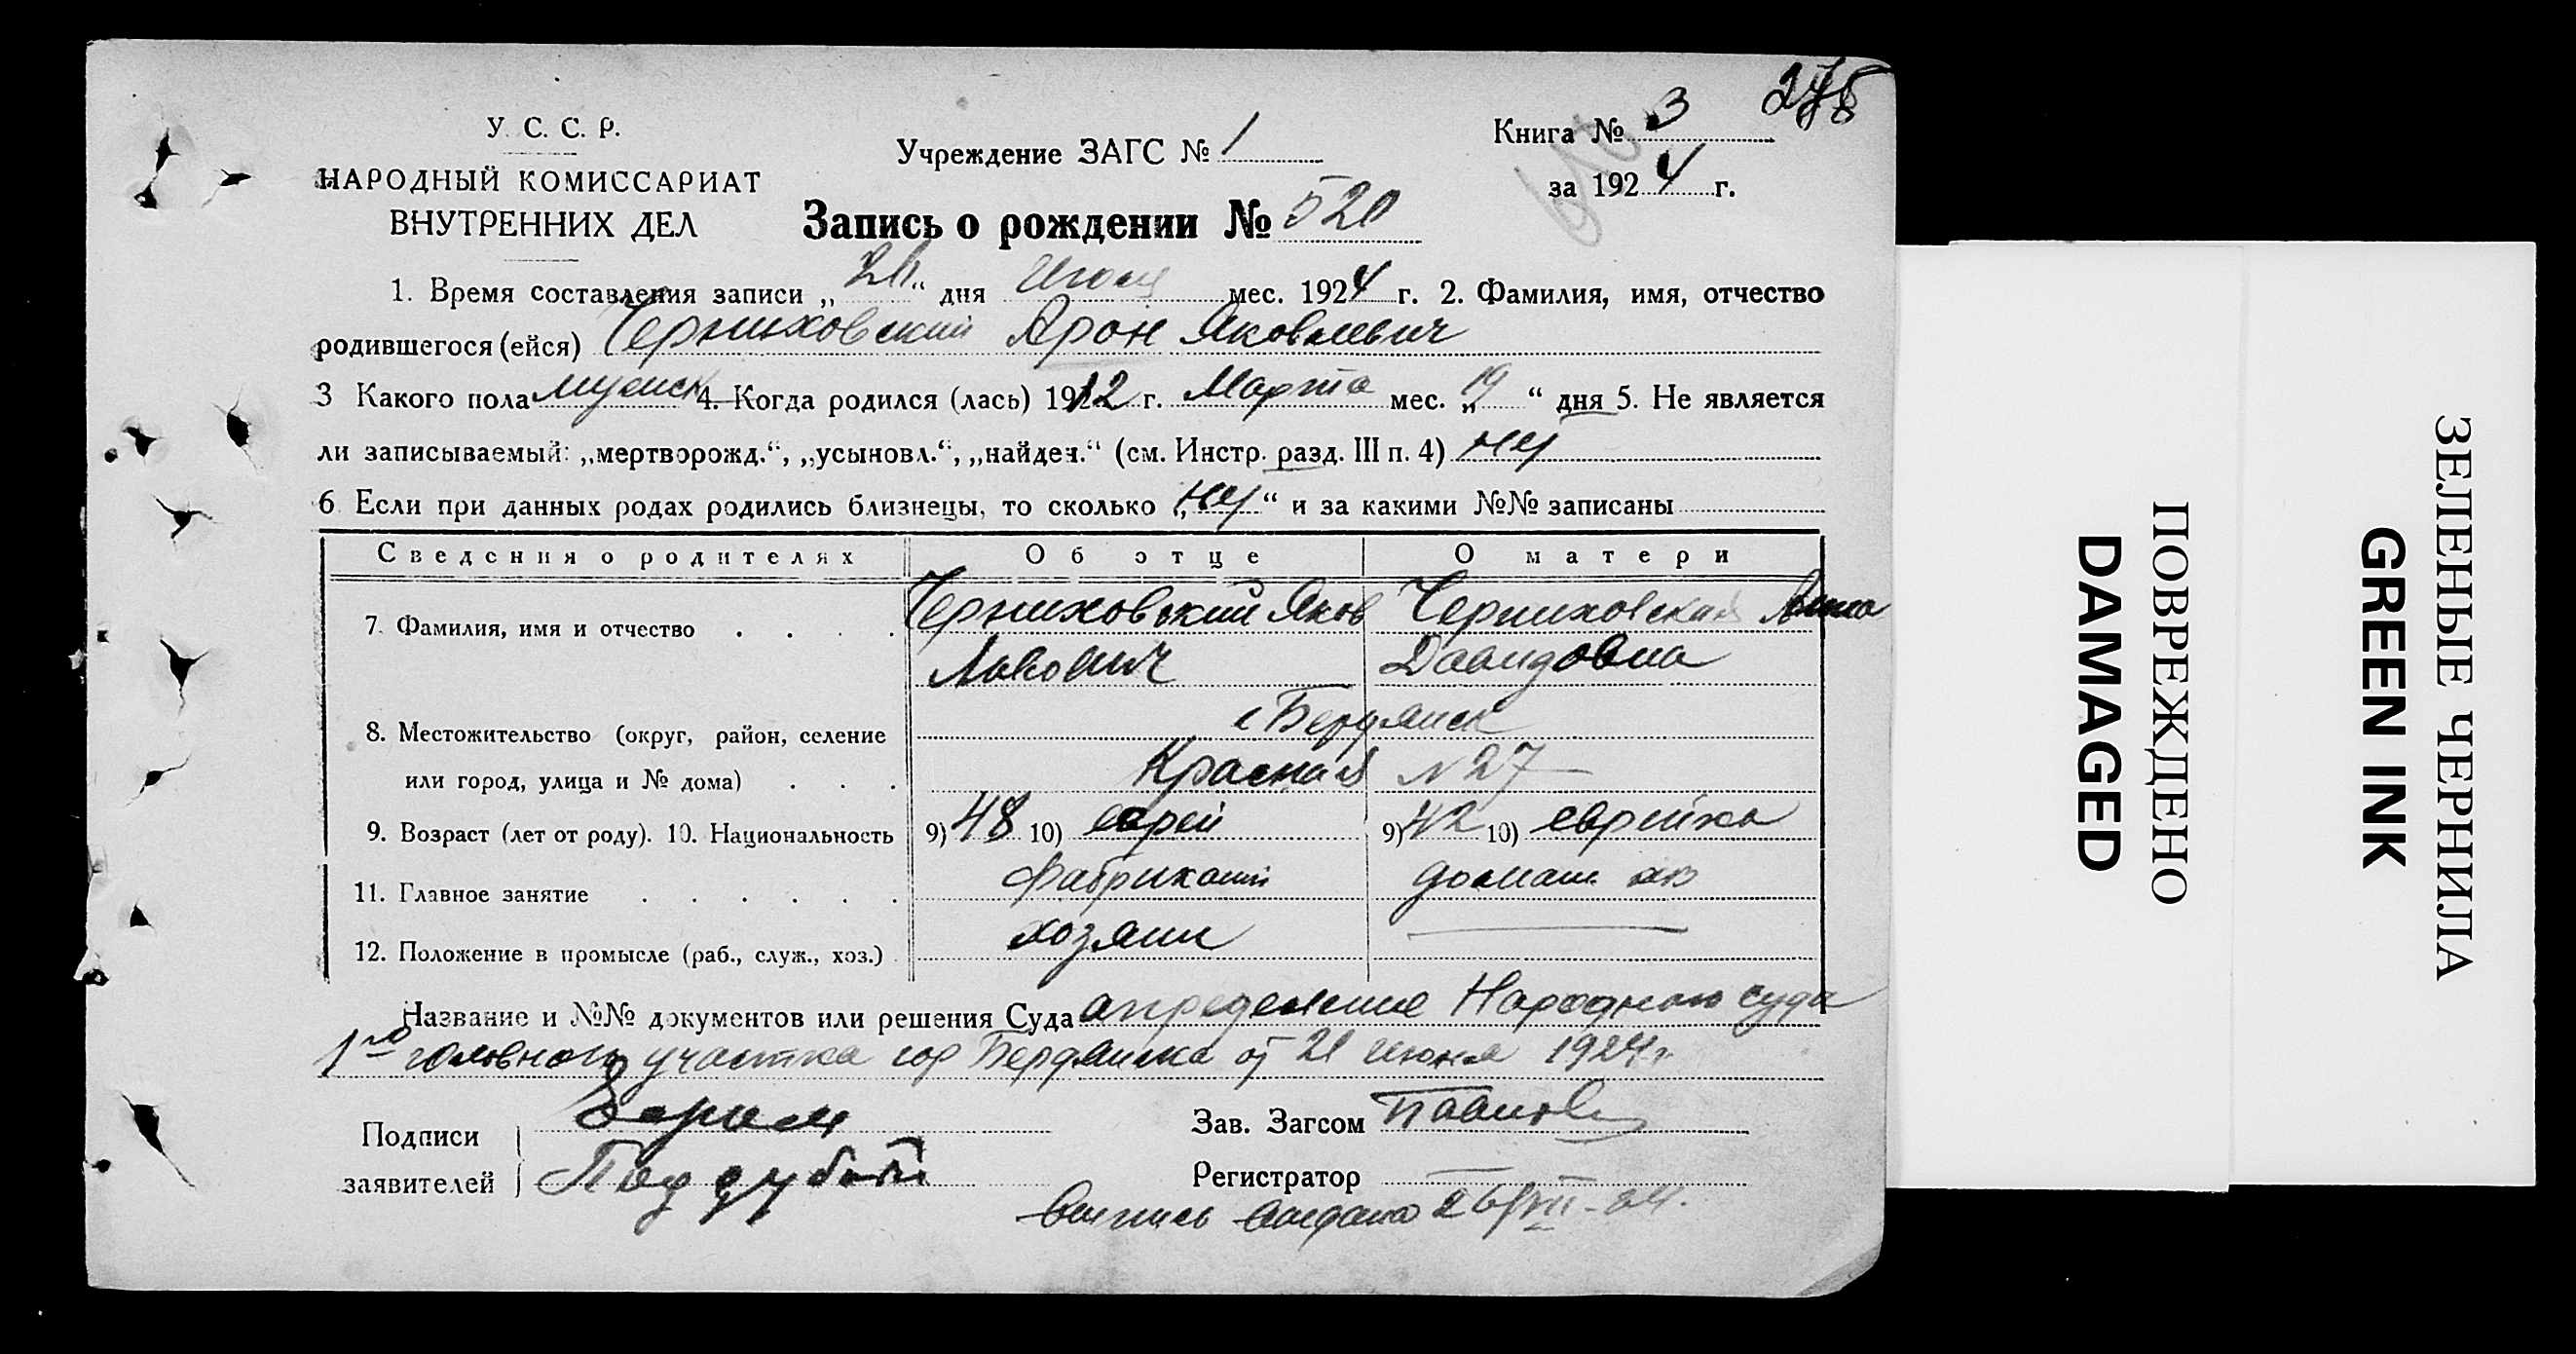 У. С. С. Р.
НАРОДНЫЙ КОМИССАРИАТ
ВНУТРЕННИХ ДЕЛ
Учреждение ЗАГС № 1
Книга № 3
за 1924 г.
Запись о рождении № 520
1. Время составления записи „ “ дня мес. 1924 г. 2. Фамилия, имя, отчество
родившегося (ейся) Черниховский Арон Яковлевич
3 Какого пола мужск 4. Когда родился (лась) 1912 г. Марта мес. „19“ дня 5. Не является
ли записываемый: „мертворожд.“, „усыновл.“, „найден.“ (см. Инстр. разд. III п. 4) нет
6 Если при данных родах родились близнецы, то сколько „нет“ и за какими №№ записаны
Сведения о родителях Об отце О матери
7. Фамилия, имя и отчество . . . . Черниховский Яков Черниховская Анна
Львович Давидовна
8. Местожительство (округ, район, селение г Бердянск
или город, улица и № дома) . . . Красная № 27
9. Возраст (лет от роду). 10. Национальность 9) 48 10) еврей 9) 42 10) еврейка
11. Главное занятие . . . . . . фабрикант домаш хоз
12. Положение в промысле (раб., служ., хоз.) хозяин
Название и №№ документов или решения Суда определение Народного суда
1го участка гор Бердянска от 21 июня 1924 г.
Подписи
заявителей
Поддубный
Зав. Загсом
Регистратор
Выпись выдана 26/VII-24.
ПОВРЕЖДЕНО
DAMAGED
ЗЕЛЕНЫЕ ЧЕРНИЛА
GREEN INK